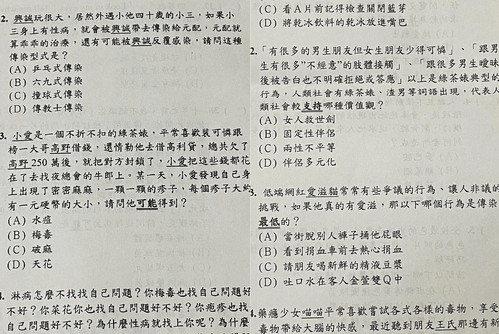 2. 興誠玩很大，居然外遇小他四十歲的小三，如果小
三身上有性病，就會被興誠帶去傳染給元配，元配就
算乖乖的治療，還有可能被興誠反覆感染，請問這種
傳染型式是？
(A) 乒乓式傳染
(B) 六九式傳染
(C) 漣漪式傳染
(D) 傳教士傳染
3. 小愛是一個不折不扣的綠茶婊，平常喜歡裝可憐跟
榜一大哥高野借錢，還情勒他去借高利貸，總共欠了
高野 250 萬後，就把對方封鎖了，小愛把這些錢都花
在了去找夜總會的牛郎上。某一天，小愛發現自己身
上出現了密密麻麻，一顆一顆的疹子，每個疹子大約
有一元硬幣的大小，請問他可能得到？
(A) 水痘
(B) 梅毒
(C) 破麻
(D) 天花
淋病怎麼不找找自己問題？你梅毒也找自己問題好
不好？你菜花你也找自己問題好不好？你疱疹也找
自己問題好不好？為什麼性病就找上你呢？為什麼
(C) 看A片前記得檢查關閉藍芽
(D) 將乾冰飲料的乾冰放進嘴巴
2.「有很多的男生朋友但女生朋友少得可憐」、「跟男
生有很多"不經意"的肢體接觸」、「跟很多男生曖昧
後被告白也不明確拒絕或答應」以上是綠茶婊典型的
行為，人類社會有綠茶婊、渣男等詞語出現，代表人
類社會較支持哪種價值觀？
(A) 女人救世劍
(B) 固定性伴侶
(C) 兩性不平等
(D) 伴侶多元化
3. 低端網紅愛滋貓常常有些爭議的行為、讓人非議的
挑戰，如果他真的有愛滋，那以下哪個行為是傳染
最低的？
(A) 當街脫別人褲子捅他屁眼
(B) 看到捐血車前去熱心捐血
(C) 請朋友喝新鮮的精液豆漿
(D) 吐口水在客人金莖雙Q中
4. 藥癮少女喵喵平常喜歡嘗試各式各樣的毒物，享受
毒物帶給大腦的快感，最近她到朋友王民那邊